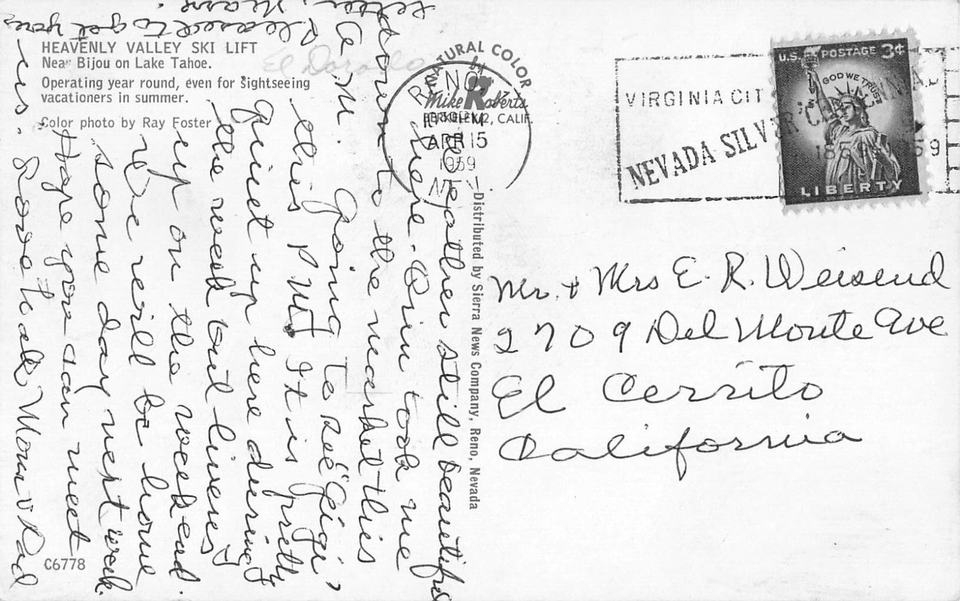 HEAVENLY VALLEY SKI LIFT
Near Bijou on Lake Tahoe.
Operating year round, even for Sightseeing
vacationers in summer.
Color photo by Ray Foster
El Dorado
NATURAL COLOR
by
Mike Roberts
BERKELEY 2, CALIF.
RENO
APR 15
1959
NEV.
VIRGINIA CIT
NEVADA SILV
1859
U.S. POSTAGE 3¢
IN GOD WE TRUST
LIBERTY
Distributed by Sierra News Company, Reno, Nevada
Mr. & Mrs E. R. Weisend
2709 Del Monte Ave
El Cerrito
California
The weather still beautiful
here. Erin took me
down to the market this
A M. Going to see "Gigi"
this P M. It is pretty
quiet up here during
the week but livens
up on the weekend.
We will be home
some day next week.
Hope you can meet
us. Love to all Mom & Dad
Pleased to get your
letter,
C6778